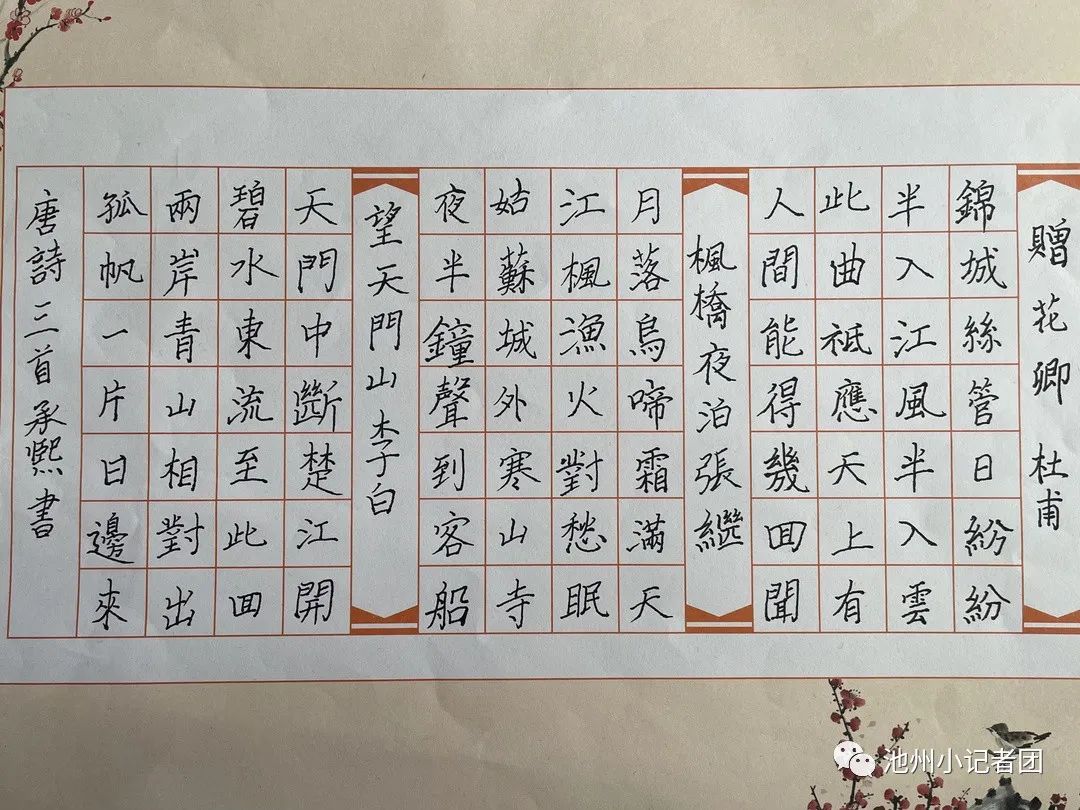 贈花卿 杜甫
錦城絲管日紛紛
半入江風半入雲
此曲祗應天上有
人間能得幾回聞
楓橋夜泊張繼
月落烏啼霜滿天
江楓漁火對愁眠
姑蘇城外寒山寺
夜半鐘聲到客船
望天門山李白
天門中斷楚江開
碧水東流至此回
兩岸青山相對出
孤帆一片日邊來
唐詩三首承熙書
池州小记者团